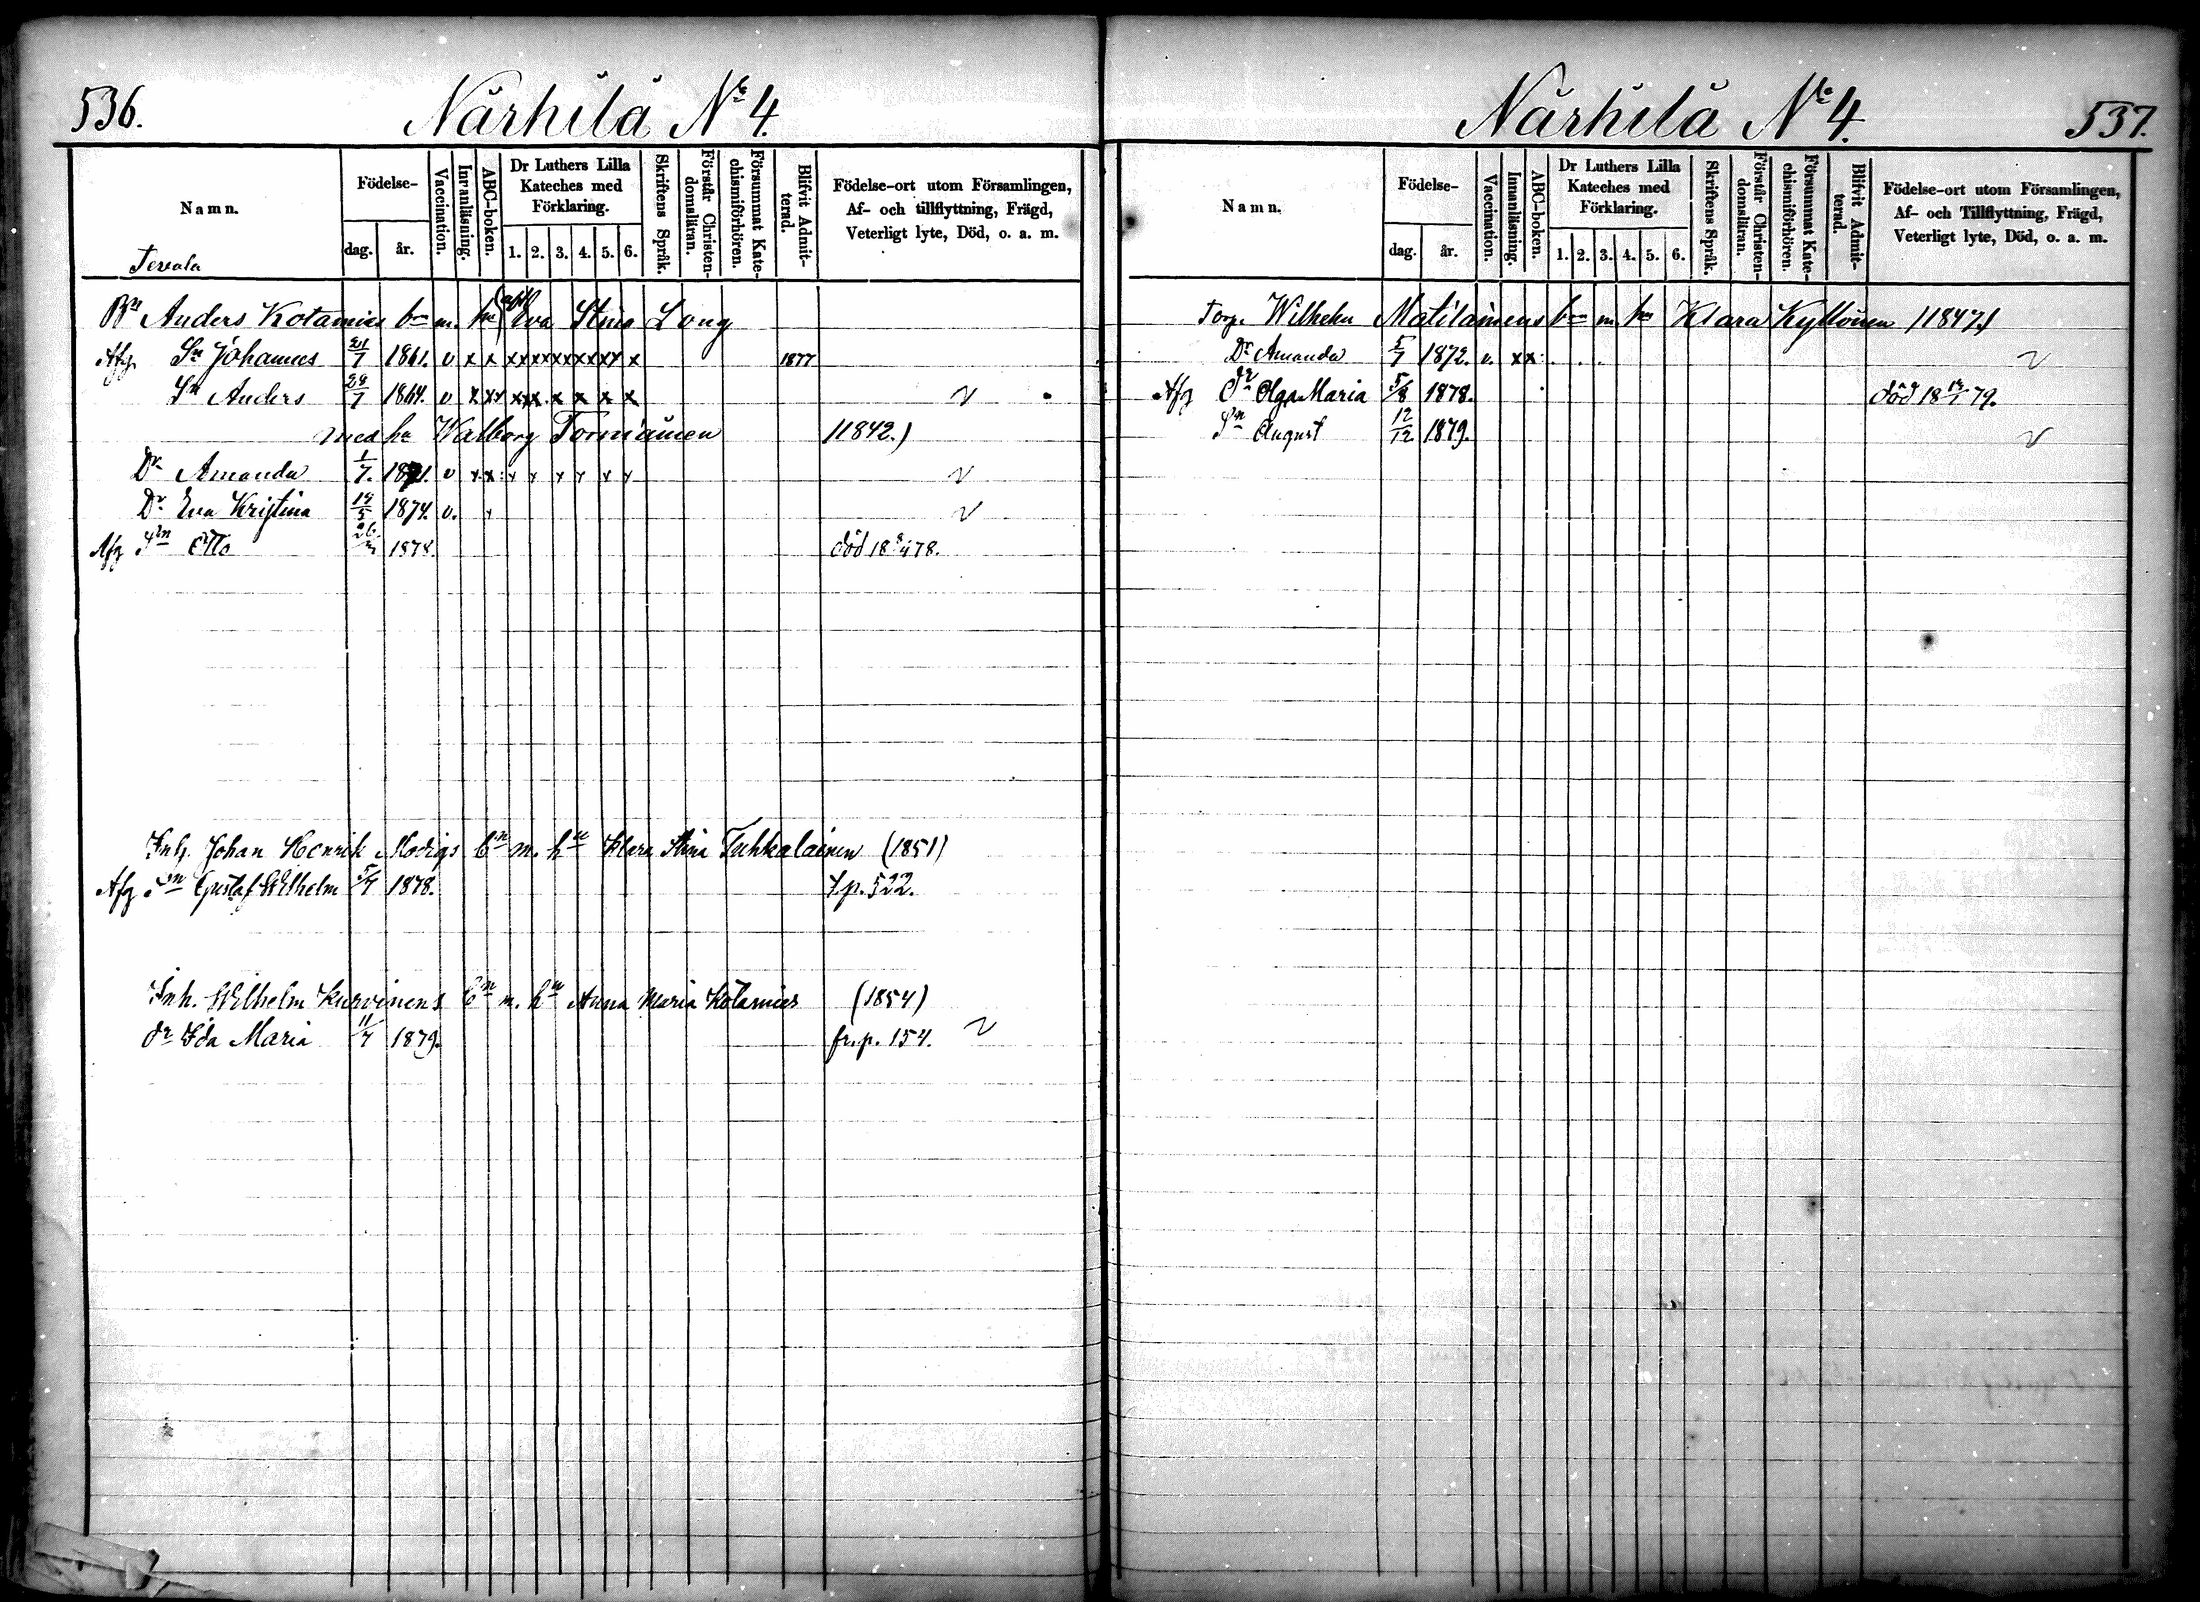 536.
Närhilä No 4.
Namn.
Födelse-
dag.
år.
Vaccination.
Innanläsning.
ABC-boken.
Dr Luthers Lilla
Kateches med
Förklaring.
1. 2. 3. 4. 5. 6.
Skriftens Språk.
Förstår Christen-
domsläran.
Försummat Kate-
chismiförhören.
Blifvit Admit-
terad.
Födelse-ort utom Församlingen,
Af- och tillflyttning, Frägd,
Veterligt lyte, Död, o. a. m.
Bn Anders Kotamies bn m. hu Eva Stina Long
Afg. Sn Johannes 1861. v x x xx xx xx xx xx x 1877
Sn Anders 29/7 1864. v x xx xx x x x x x
med hu Walborg Tormänen (1842.)
Dr Amanda 1/7. 1871. v x x x x x x x x
Dr Eva Kristina 1874. v.
Afg Sn Otto 1878. död 18 78.
Inh. Johan Henrik Modigs bn m. hu Klara Stina Tuhkalainen (1851)
Afg Sn Gustaf Wilhelm 5/7 1878. t.p. 522.
Inh. Wilhelm Kurvinens bn m. hu Anna Maria Kotamies (1854)
dr Ida Maria 11/7 1879. fr. p. 154.
Närhilä No 4.
537.
Namn.
Födelse-
dag.
år.
Vaccination.
Innanläsning.
ABC-boken.
Dr Luthers Lilla
Kateches med
Förklaring.
1. 2. 3. 4. 5. 6.
Skriftens Språk.
Förstår Christen-
domsläran.
Försummat Kate-
chismiförhören.
Blifvit Admit-
terad.
Födelse-ort utom Församlingen,
Af- och Tillflyttning, Frägd,
Veterligt lyte, Död, o. a. m.
Torp. Wilhelm Matilainens bn m hu Klara Kyllönen (1847.)
Dr Amanda 5/7 1872. v. xx
Afg Dr Olga Maria 5/8 1878. död 18 79.
Sn August 12/12 1879.